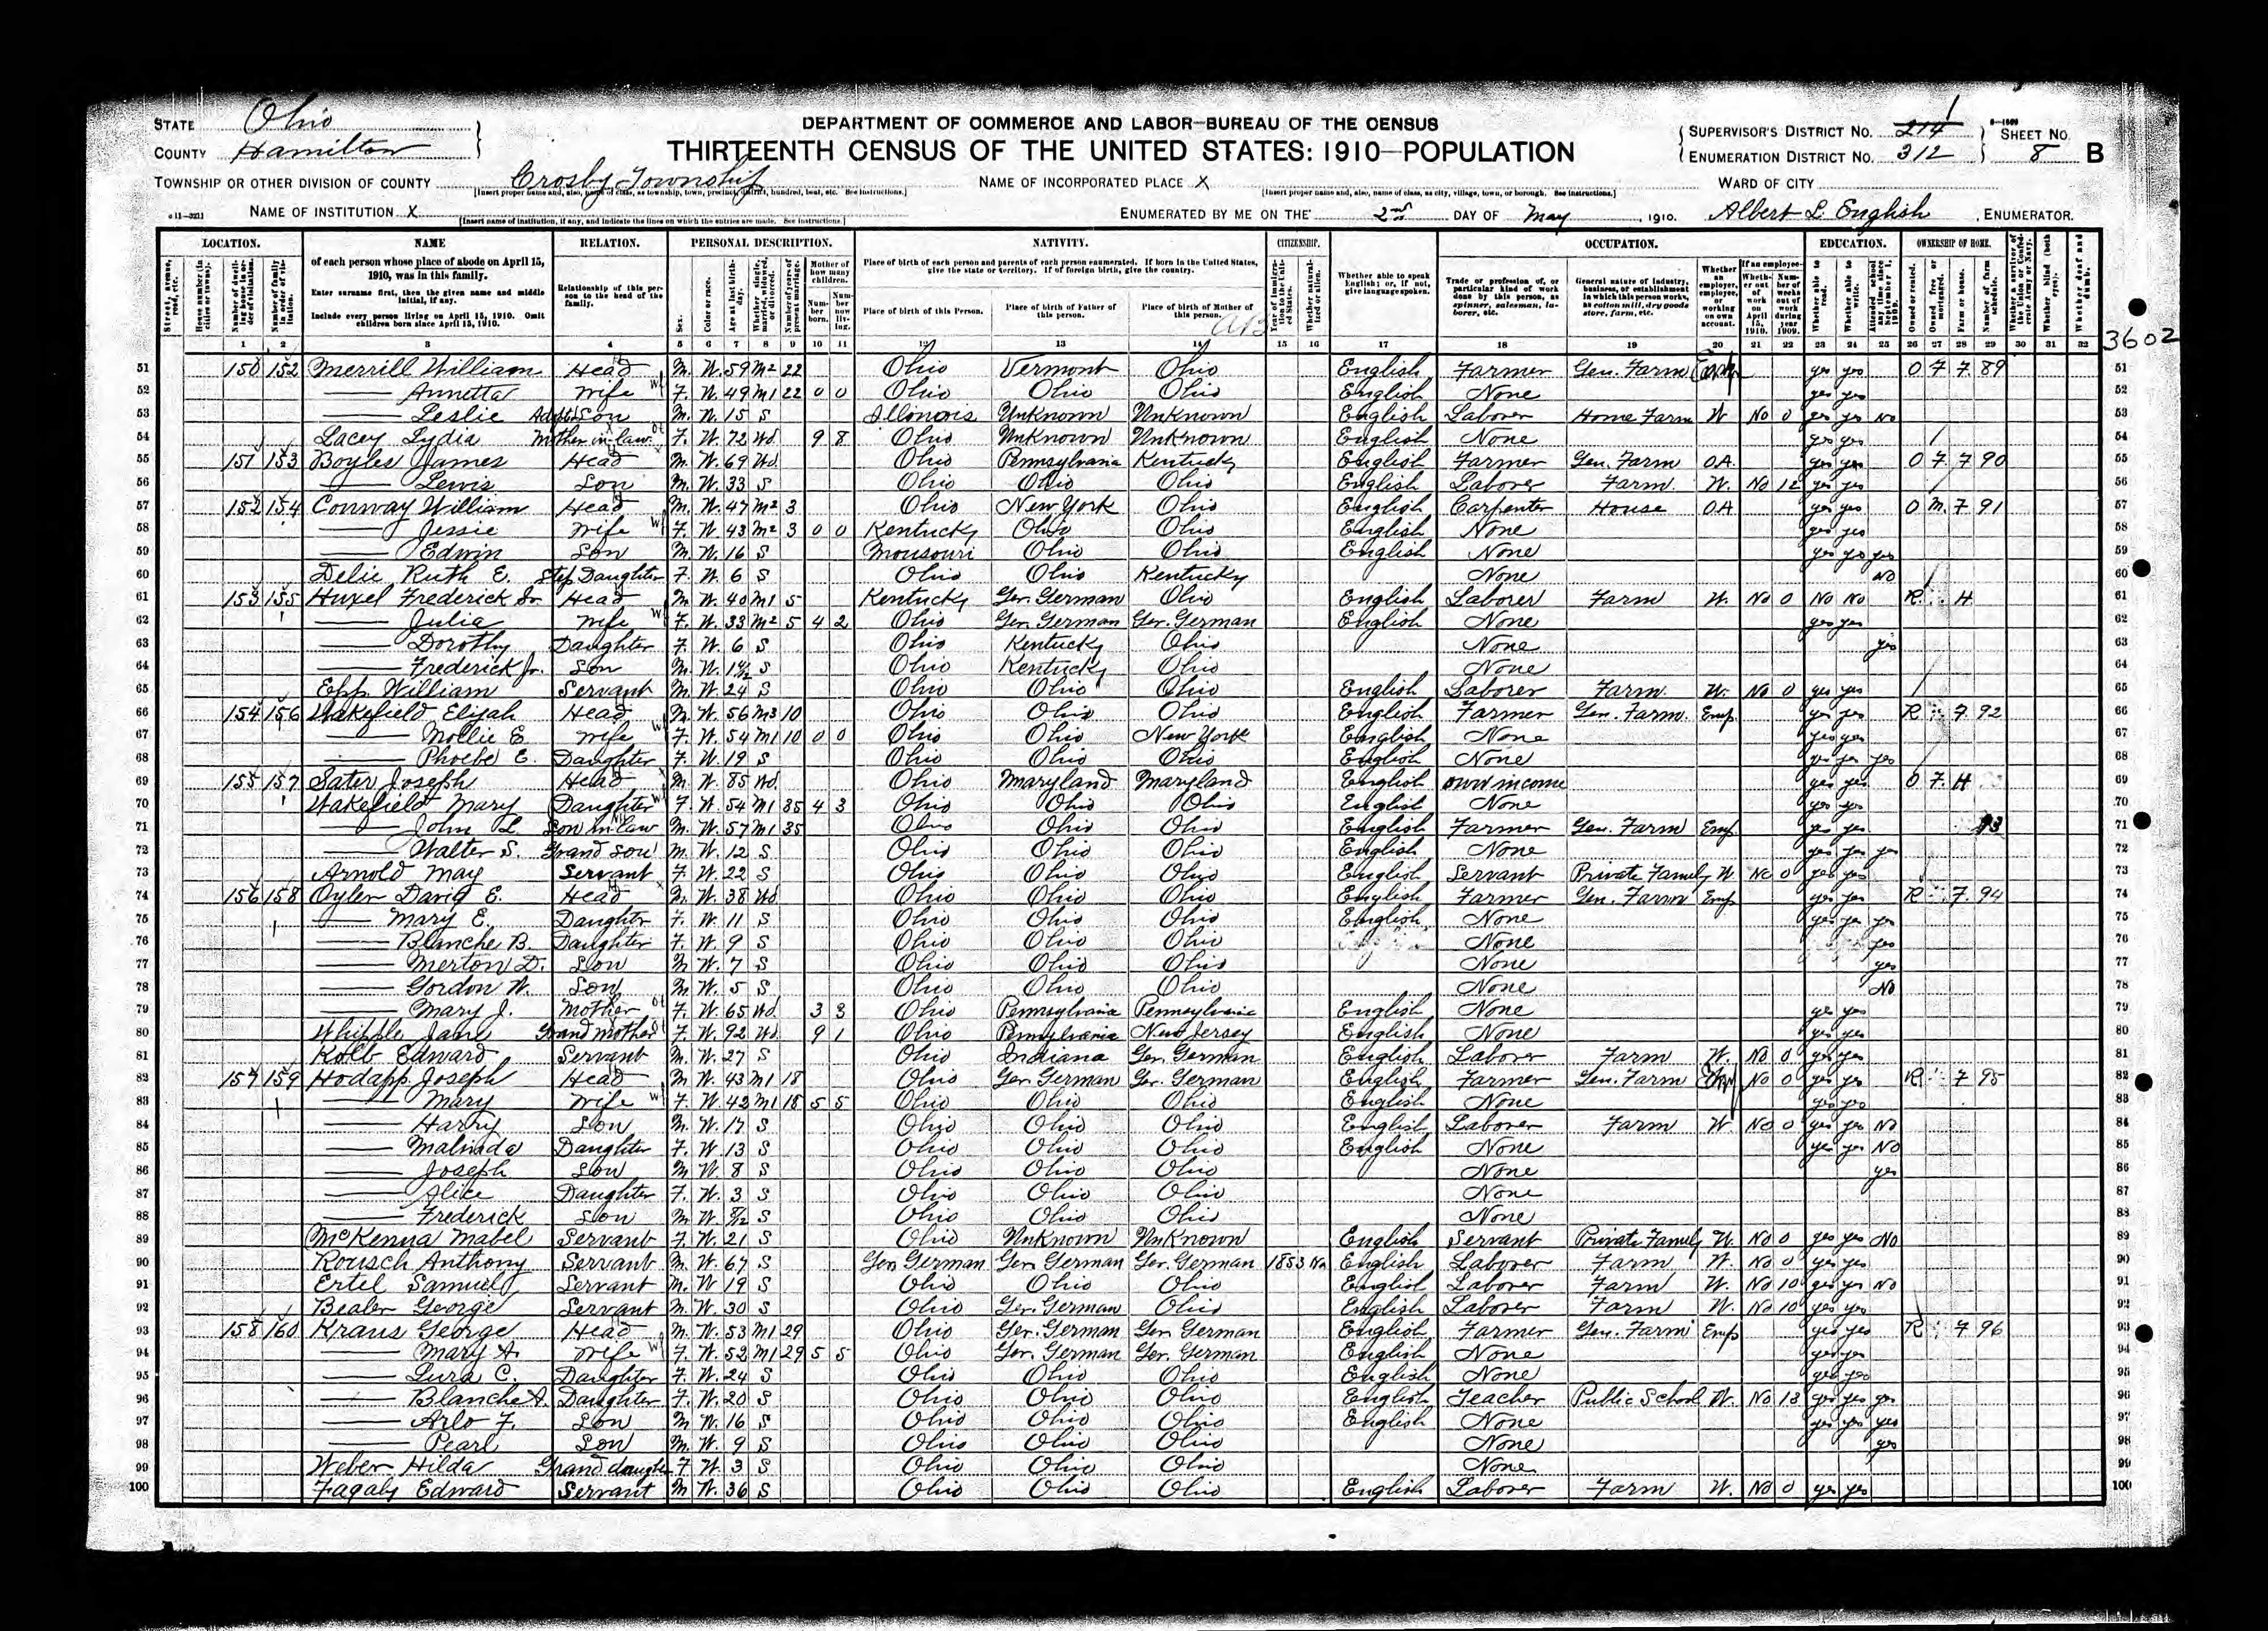 STATE Ohio
COUNTY Hamilton
DEPARTMENT OF COMMERCE AND LABOR—BUREAU OF THE CENSUS
THIRTEENTH CENSUS OF THE UNITED STATES: 1910—POPULATION
SUPERVISOR'S DISTRICT NO. 214 1
ENUMERATION DISTRICT NO. 312
SHEET NO. 8 B
TOWNSHIP OR OTHER DIVISION OF COUNTY Crosby Township
NAME OF INCORPORATED PLACE X
WARD OF CITY
NAME OF INSTITUTION X
ENUMERATED BY ME ON THE 2nd DAY OF May, 1910. Albert L. English, ENUMERATOR.
LOCATION. NAME RELATION. PERSONAL DESCRIPTION. NATIVITY. CITIZENSHIP. OCCUPATION. EDUCATION. OWNERSHIP OF HOME.
of each person whose place of abode on April 15, 1910, was in this family.
Enter surname first, then the given name and middle initial, if any.
Include every person living on April 15, 1910. Omit children born since April 15, 1910.
Relationship of this person to the head of the family.
Place of birth of each person and parents of each person enumerated. If born in the United States, give the state or territory. If of foreign birth, give the country.
Place of birth of this Person. Place of birth of Father of this person. Place of birth of Mother of this person.
Whether able to speak English; or, if not, give language spoken.
3602
51 150 152 Merrill William Head M. W. 59 M2 22 Ohio Vermont Ohio English Farmer Gen. Farm Emp yes yes O F F 89
52 —— Annetta Wife F. W. 49 M1 22 0 0 Ohio Ohio Ohio English None yes yes
53 —— Leslie Adopted Son M. W. 15 S Illonois Unknown Unknown English Laborer Home Farm W No 0 yes yes No
54 Lacey Lydia Mother in-law F. W. 72 Wd. 9 8 Ohio Unknown Unknown English None yes yes
55 151 153 Boyles James Head M. W. 69 Wd. Ohio Pennsylvania Kentucky English Farmer Gen. Farm O.A. yes yes O F F 90
56 —— Lewis Son M. W. 33 S Ohio Ohio Ohio English Laborer Farm W. No 12 yes yes
57 152 154 Conway William Head M. W. 47 M2 3 Ohio New York Ohio English Carpenter House OA yes yes O M. F 91
58 —— Jessie Wife F. W. 43 M2 3 0 0 Kentucky Ohio Ohio English None yes yes
59 —— Edwin Son M. W. 16 S Mousouri Ohio Ohio English None yes yes yes
60 Delie Ruth E. Step Daughter F. W. 6 S Ohio Ohio Kentucky None No
61 153 155 Huxel Frederick Sr. Head M. W. 40 M1 5 Kentucky Ger. German Ohio English Laborer Farm W. No 0 No No R. H
62 —— Julia Wife F. W. 33 M2 5 4 2 Ohio Ger. German Ger. German English None yes yes
63 —— Dorothy Daughter F. W. 6 S Ohio Kentucky Ohio None yes
64 —— Frederick Jr. Son M. W. S Ohio Kentucky Ohio None
65 Epp William Servant M. W. 24 S Ohio Ohio Ohio English Laborer Farm W. No 0 yes yes
66 154 156 Wakefield Elijah Head M. W. 56 M3 10 Ohio Ohio Ohio English Farmer Gen. Farm Emp. yes yes R F 92
67 —— Mollie E. Wife F. W. 54 M1 10 0 0 Ohio Ohio New York English None yes yes
68 —— Phoebe E. Daughter F. W. 19 S Ohio Ohio Ohio English None yes yes yes
69 155 157 Sater Joseph Head M. W. 85 Wd. Ohio Maryland Maryland English own income yes yes O F. H
70 Wakefield Mary Daughter F. W. 54 M1 35 4 3 Ohio Ohio Ohio English None yes yes
71 —— John L. Son in-law M. W. 57 M1 35 Ohio Ohio Ohio English Farmer Gen. Farm Emp. yes yes 93
72 —— Walter S. Grand son M. W. 12 S Ohio Ohio Ohio English None yes yes yes
73 Arnold May Servant F. W. 22 S Ohio Ohio Ohio English Servant Private Family W No 0 yes yes
74 156 158 Oyler David E. Head M. W. 38 Wd Ohio Ohio Ohio English Farmer Gen. Farm Emp yes yes R F. 94
75 —— Mary E. Daughter F. W. 11 S Ohio Ohio Ohio English None yes yes yes
76 —— Blanche B. Daughter F. W. 9 S Ohio Ohio Ohio None yes
77 —— Merton D. Son M W. 7 S Ohio Ohio Ohio None yes
78 —— Gordon W. Son M W. 5 S Ohio Ohio Ohio None No
79 —— Mary J. Mother F. W. 65 Wd. 3 3 Ohio Pennsylvania Pennsylvania English None yes yes
80 Whipple Jane Grand mother F. W. 92 Wd. 9 1 Ohio Pennsylvania New Jersey English None yes yes
81 Kolb Edward Servant M. W. 27 S Ohio Indiana Ger. German English Laborer Farm W. No 0 yes yes
82 157 159 Hodapp Joseph Head M W. 43 M1 18 Ohio Ger German Ger. German English Farmer Gen. Farm Emp No 0 yes yes R F 95
83 —— Mary Wife F. W. 42 M1 18 5 5 Ohio Ohio Ohio English None yes yes
84 —— Harry Son M. W. 17 S Ohio Ohio Ohio English Laborer Farm W. No 0 yes yes No
85 —— Malinda Daughter F. W. 13 S Ohio Ohio Ohio English None yes yes No
86 —— Joseph Son M W. 8 S Ohio Ohio Ohio None yes
87 —— Alice Daughter F. W. 3 S Ohio Ohio Ohio None
88 —— Frederick Son M W. 8/12 S Ohio Ohio Ohio None
89 McKenna Mabel Servant F. W. 21 S Ohio Unknown Unknown English Servant Private Family W. No 0 yes yes No
90 Rousch Anthony Servant M. W. 67 S Ger German Ger German Ger. German 1853 Na English Laborer Farm W. No 0 yes yes
91 Ertel Samuel Servant M. W 19 S Ohio Ohio Ohio English Laborer Farm W. No 10 yes yes No
92 Bealer George Servant M. W. 30 S Ohio Ger. German Ohio English Laborer Farm W. No 10 yes yes
93 158 160 Kraus George Head M. W. 53 M1 29 Ohio Ger. German Ger German English Farmer Gen. Farm Emp yes yes R F 96
94 —— Mary A. Wife F. W. 52 M1 29 5 5 Ohio Ger. German Ger. German English None yes yes
95 —— Lura C. Daughter F. W. 24 S Ohio Ohio Ohio English None yes yes
96 —— Blanche A. Daughter F. W. 20 S Ohio Ohio Ohio English Teacher Public School W. No 13 yes yes yes
97 —— Arlo F. Son M W. 16 S Ohio Ohio Ohio English None yes yes yes
98 —— Pearl Son M. W. 9 S Ohio Ohio Ohio None yes
99 Weber Hilda Grand daughter F W. 3 S Ohio Ohio Ohio None
100 Fagaly Edward Servant M W. 36 S Ohio Ohio Ohio English Laborer Farm W. No 0 yes yes